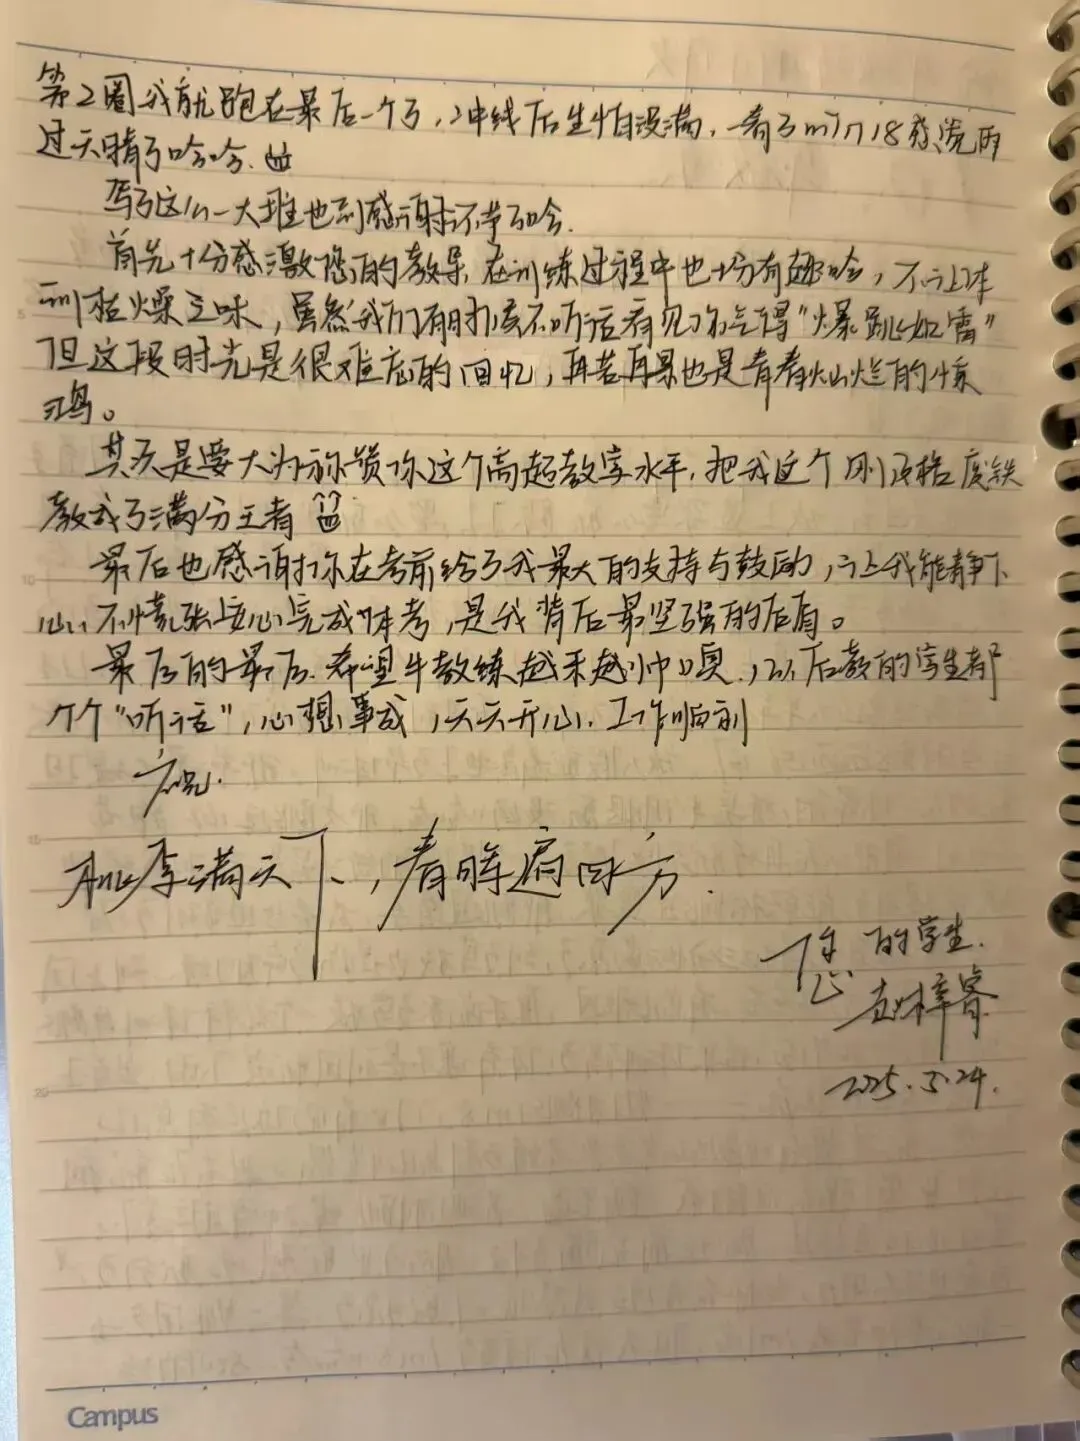 第2圈我就跑在最后一个了,冲线后生怕没满,一看3m1718秒说雨
过天晴了哈哈.
写了这么一大堆也到感谢环节了哈.
首先十分感激您的教导,在训练过程中也十分有趣哈,不让体
训枯燥乏味,虽然我们有时候不听话看见你气得“爆跳如雷”
但这段时光是很难忘的回忆,再苦再累也是青春灿烂的惊
鸿。
其次是要大为称赞你这个高超教学水平,把我这个刚及格废铁
教成了满分王者
最后也感谢你在考前给了我最大的支持与鼓励,让我能静下
心,不慌张安心完成体考,是我背后最坚强的后盾。
最后的最后.希望牛教练越来越帅噢.,以后教的学生都
个个“听话”,心想事成,天天开心.工作顺利
祝.
桃李满天下,春晖遍四方.
您的学生.
赵梓睿
2025.5.24.
Campus